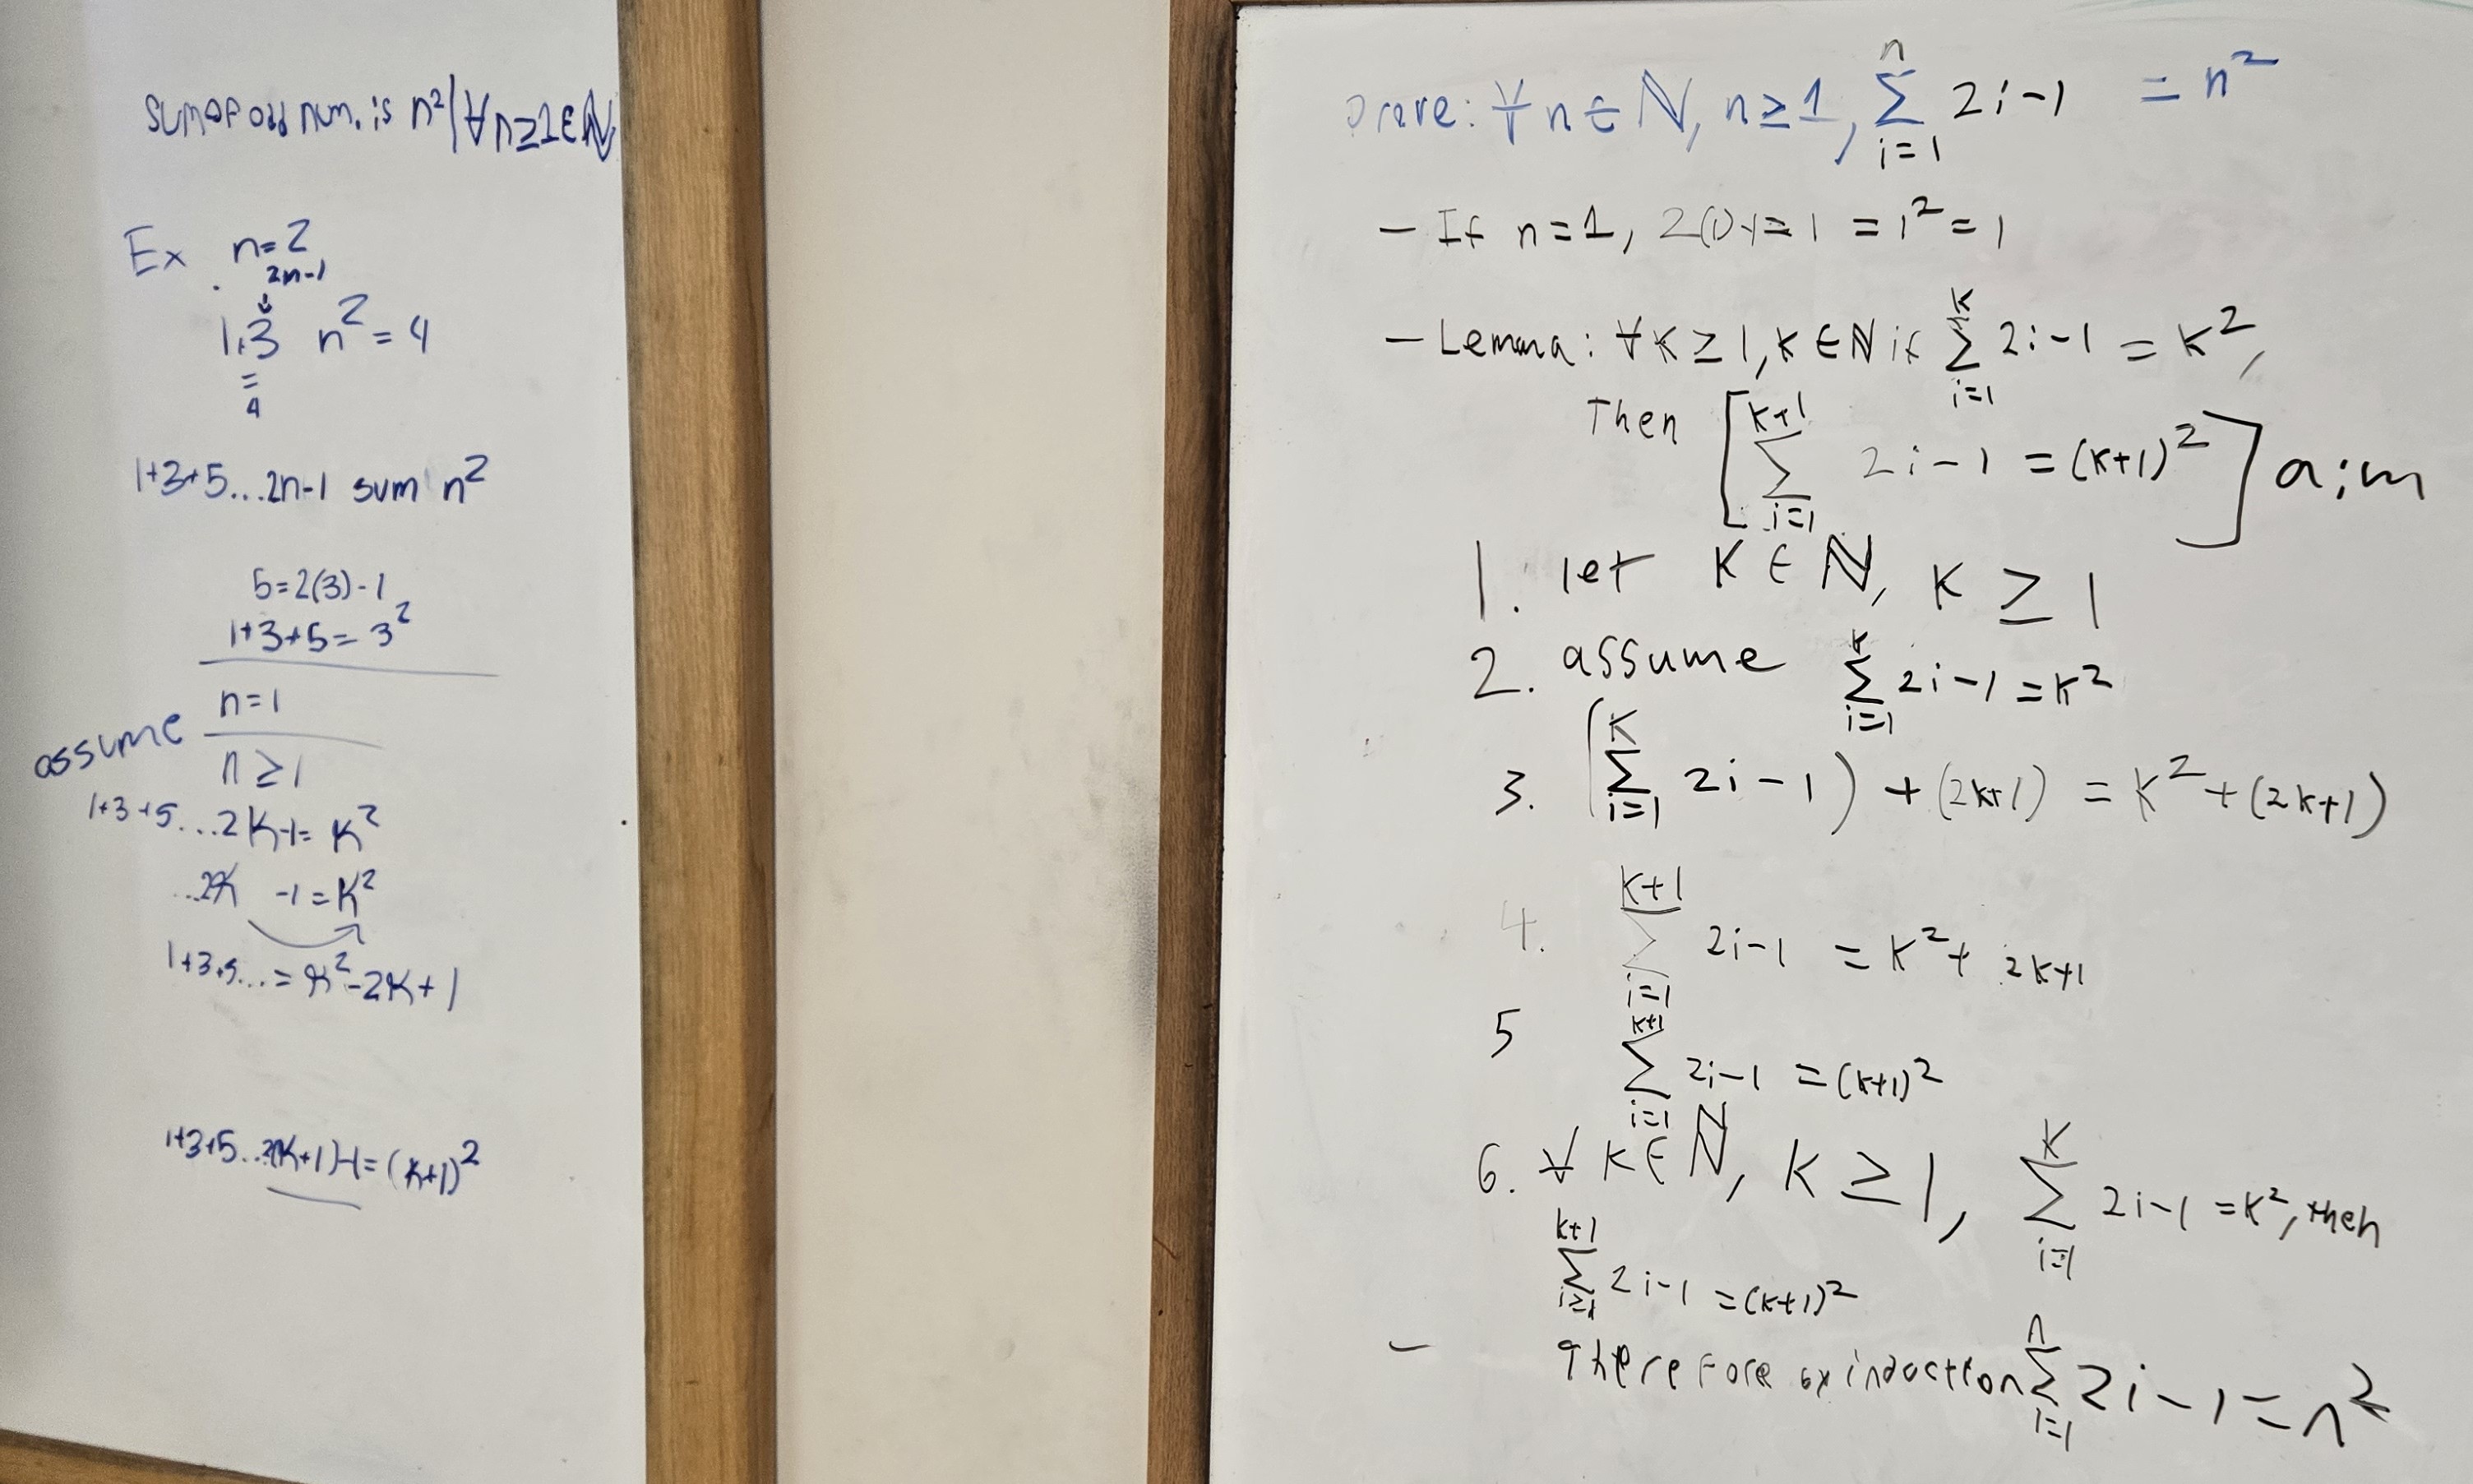 sum of odd num. is n²|∀n≥1∈ℕ
Ex n=2
2n-1
↓
1+3 n²=4
=
4
1+3+5...2n-1 sum n²
5=2(3)-1
1+3+5=3²
n=1
assume
n≥1
1+3+5...2k-1=k²
...2k -1=k²
1+3+5...=k²-2k+1
1+3+5...2(k+1)-1=(k+1)²
Prove: ∀n∈ℕ, n≥1, ∑_{i=1}^{n} 2i-1 = n²
- If n=1, 2(1)-1=1=1²=1
- Lemma: ∀k≥1, k∈ℕ if ∑_{i=1}^{k} 2i-1 = k²,
Then [∑_{i=1}^{k+1} 2i-1 = (k+1)²] aim
1. let k∈ℕ, k≥1
2. assume ∑_{i=1}^{k} 2i-1=k²
3. (∑_{i=1}^{k} 2i-1) + (2k+1) = k²+(2k+1)
4. ∑_{i=1}^{k+1} 2i-1 = k²+2k+1
5 ∑_{i=1}^{k+1} 2i-1 = (k+1)²
6. ∀k∈ℕ, k≥1, ∑_{i=1}^{k} 2i-1=k², then
∑_{i=1}^{k+1} 2i-1=(k+1)²
- Therefore by induction ∑_{i=1}^{n} 2i-1=n²